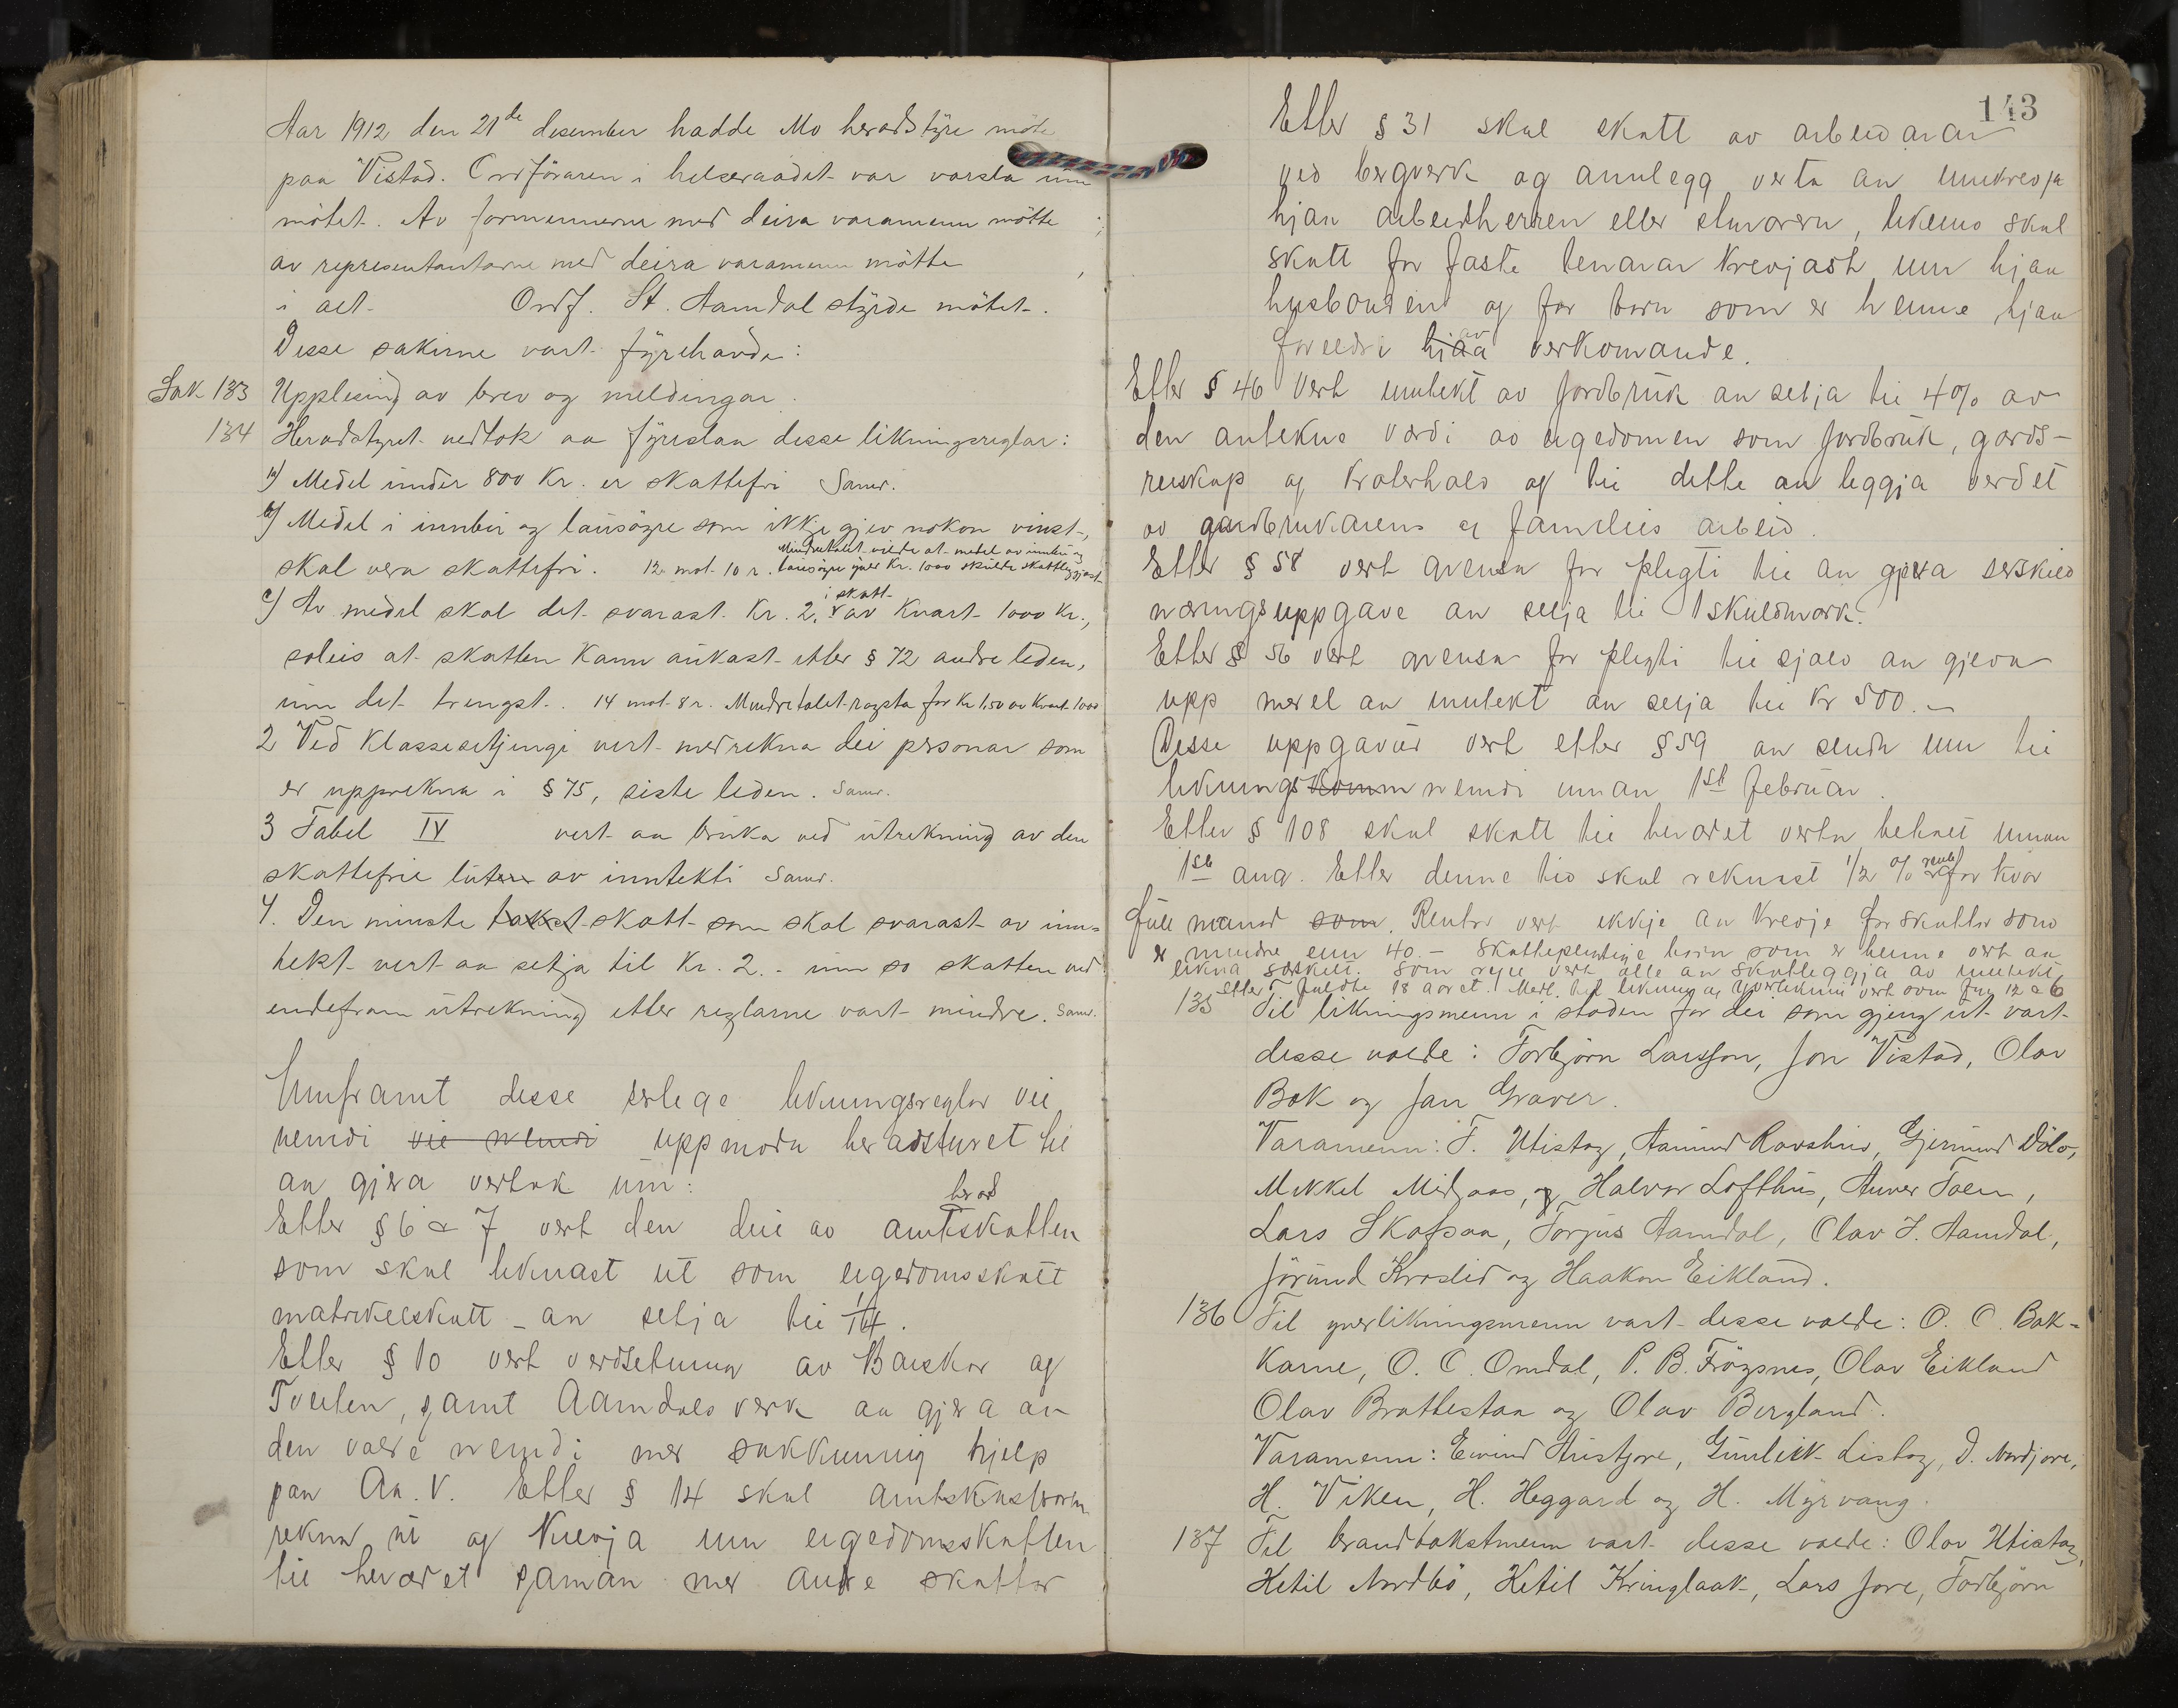 Aar 1912 den 21de desember hadde Mo heradstyre møte
paa Vistad. Ordföraren i helseraadet var varsla um
mötet. Av formennerne med deira varamenn mötte ;
av representantarne med deira varamenn mötte ,
i alt. Ordf. St. Aamdal styrde mötet.
Desse sakirne vart fyrehavde:
Sak 133 Upplesing av brev og meldingar.
134 Heradstyret vedtok aa fyreslaa desse likningsreglar:
1a) Medel under 800 Kr. er skattefri Samr.
b) Medel i innbu og lausöyre som ikkje gjev nokon vinst,
skal vera skattefri. 12 mot 10 r. Mindretalet vilde at medel av innbu og
lausöyre yver Kr. 1000 skulde skattleggjast
c) Av medel skal det svarast Kr. 2, i skatt av Kvart 1000 Kr.,
soleis at skatten Kann aukast etter § 72 andre leden,
um det trengst. 14 mot 8 r. Mindretalet röysta for Kr 1,50 av Kvart 1000
2 Ved Klassesetjingi vert medrekna dei personar som
er upprekna i § 75, siste leden. Samr.
3 Tabel IV vert aa bruka ved utrekning av den
skattefrie luten av inntekti Samr.
4. Den minste takst skatt som skal svarast av inn-
tekt vert aa setja til Kr. 2. - um so skatten ved
endefram utrekning etter reglarne vart mindre. Samr.
Umframt desse serlege likningsreglar vil
nemdi vil nemdi uppmoda heradsturet til
aa gjera vertak um:
Etter § 6 & 7 vert den dui av herad amtskatten
som skal liknast ut som eigedomsskatt
matrikelskatt - aa setja til 1/4.
Etter § 10 vert verdsetning av Barskar og
Tveiten, samt Aamdals verk aa gjera av
den valde nemdi mer sakkunnig hjelp
paa Aa. V. Etter § 14 skal amtskasseraren
rekna ut og krevja um eigedomsskatten
til heradet saman mer andre skattar
143
Etter § 31 skal skatt av arbeidarar
ved bergverk og annlegg verta aa innkrevja
hjaa arbeidsherren eller , likeins skal
skatt for faste tenarar krevjast inn hjaa
husbonden og for born som er heime hjaa
foreldri hjaa av verkomande.
Etter § 46 vert inntekt av jordbruk aa setja til 4% av
den antekne verdi av eigedomen som jordbruk, gards-
reiskap og krøterhald og til dette aa leggja verdet
av gardbrukarens og familiens arbeid.
Etter § 58 vert grensa for plegti til aa gjera serskild
næringsuppgave aa setja til 1 skuldmark.
Etter § 56 vert grensa for plegti til sjølv aa gjeva
upp merel aa inntekt aa setja til Kr 500. -
Desse uppgavur vert etter § 59 aa senda inn til
liknings komm nemdi innan 1st februar.
Etter § 108 skal skatt til heradet verta betalt innan
1st aug. Etter denne tid skal reknast 1/2 % rente for kvar
full maanad som. Rentor vert ikkje aa krevje for skatter som
er mindre enn 40. - Skattepligtige born som er heime vert aa
likna serskilt. Som regel vert alle aa skatleggja av inntekt
etter fyldte 18 aaret. Medl. av likning og yverlikning vert som fyr 12 & 6
135 Til likningsmenn i staden for dei som gjeng ut vart
desse valde: Torbjörn Larsson, Jon Vistad, Olav
Bak og Jan Graver.
Varamenn: T. Utistog, Aanund Ravstuv, Gjermund Dalo,
Mikkel Midgaas, og Halvor Lofthus, Anver Toen,
Lars Skafsaa, Torjus Aamdal, Olav J. Aamdal,
Jörund Kroslid og Haakon Eikland.
136 Til yverlikningsmenn vart desse valde: O. C. Bak-
Karne, O. C. Omdal, P. B. Fröysnes, Olav Eikland
Olav Brattestaa og Olav Bergland.
Varamenn: Eivind Austjore, Gunleik Listog, D. Nordjore,
H. Viken, H. Heggard og H. Myrvang.
137 Til brandtakstmenn vart desse valde: Olav Utistog,
Ketil Nordbö, Ketil Kringlaak, Lars Jore, Torbjörn